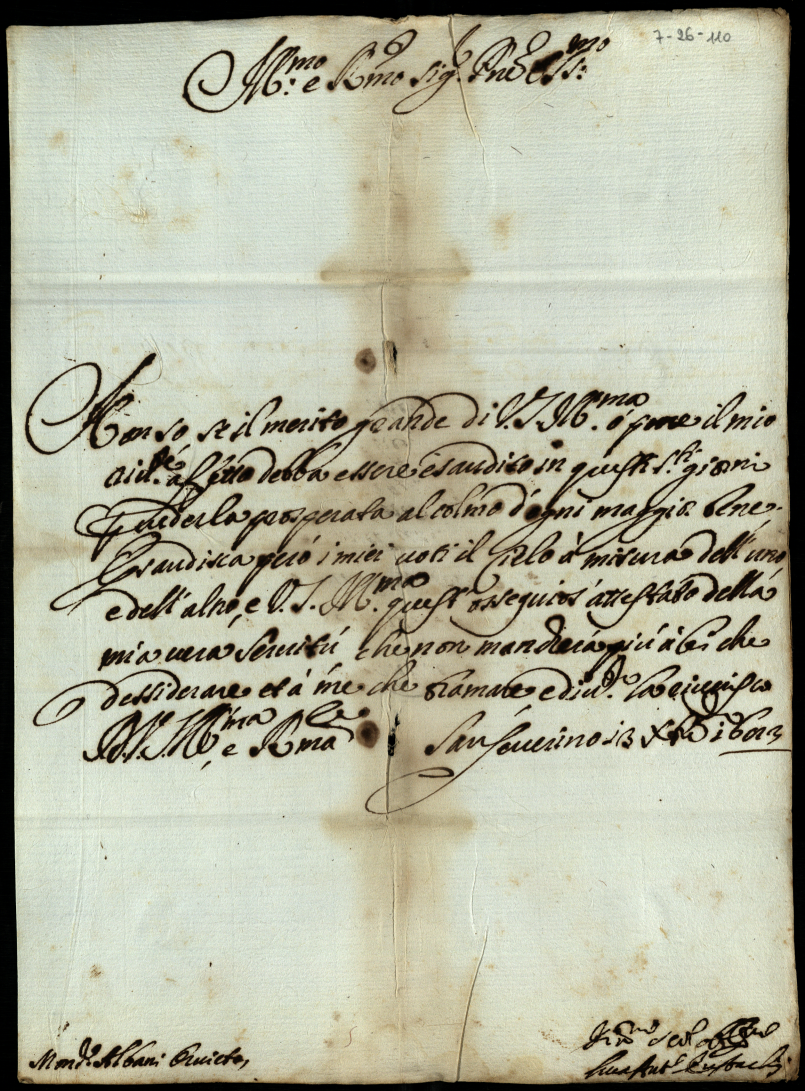 7-26-110
Ill.mo e R.mo Sig.r Pne Oss.mo
Non so, se il merito grande di V.S. Ill.ma ó pure il mio
affetto debba essere esaudito in questi s.ti giorni
vederla prosperata al colmo d'ogni maggior bene.
Esaudisca peró i miei voti il Cielo á misura dell'uno
e dell'altro, e V.S. Ill.ma quest'ossequios' attestato della
mia vera servitú che non mancherá piú á lei che
dessiderare et á me che bramare e
D.V.S. Ill.ma e R.ma San Severino 13 Xbre
Mons.r Albani